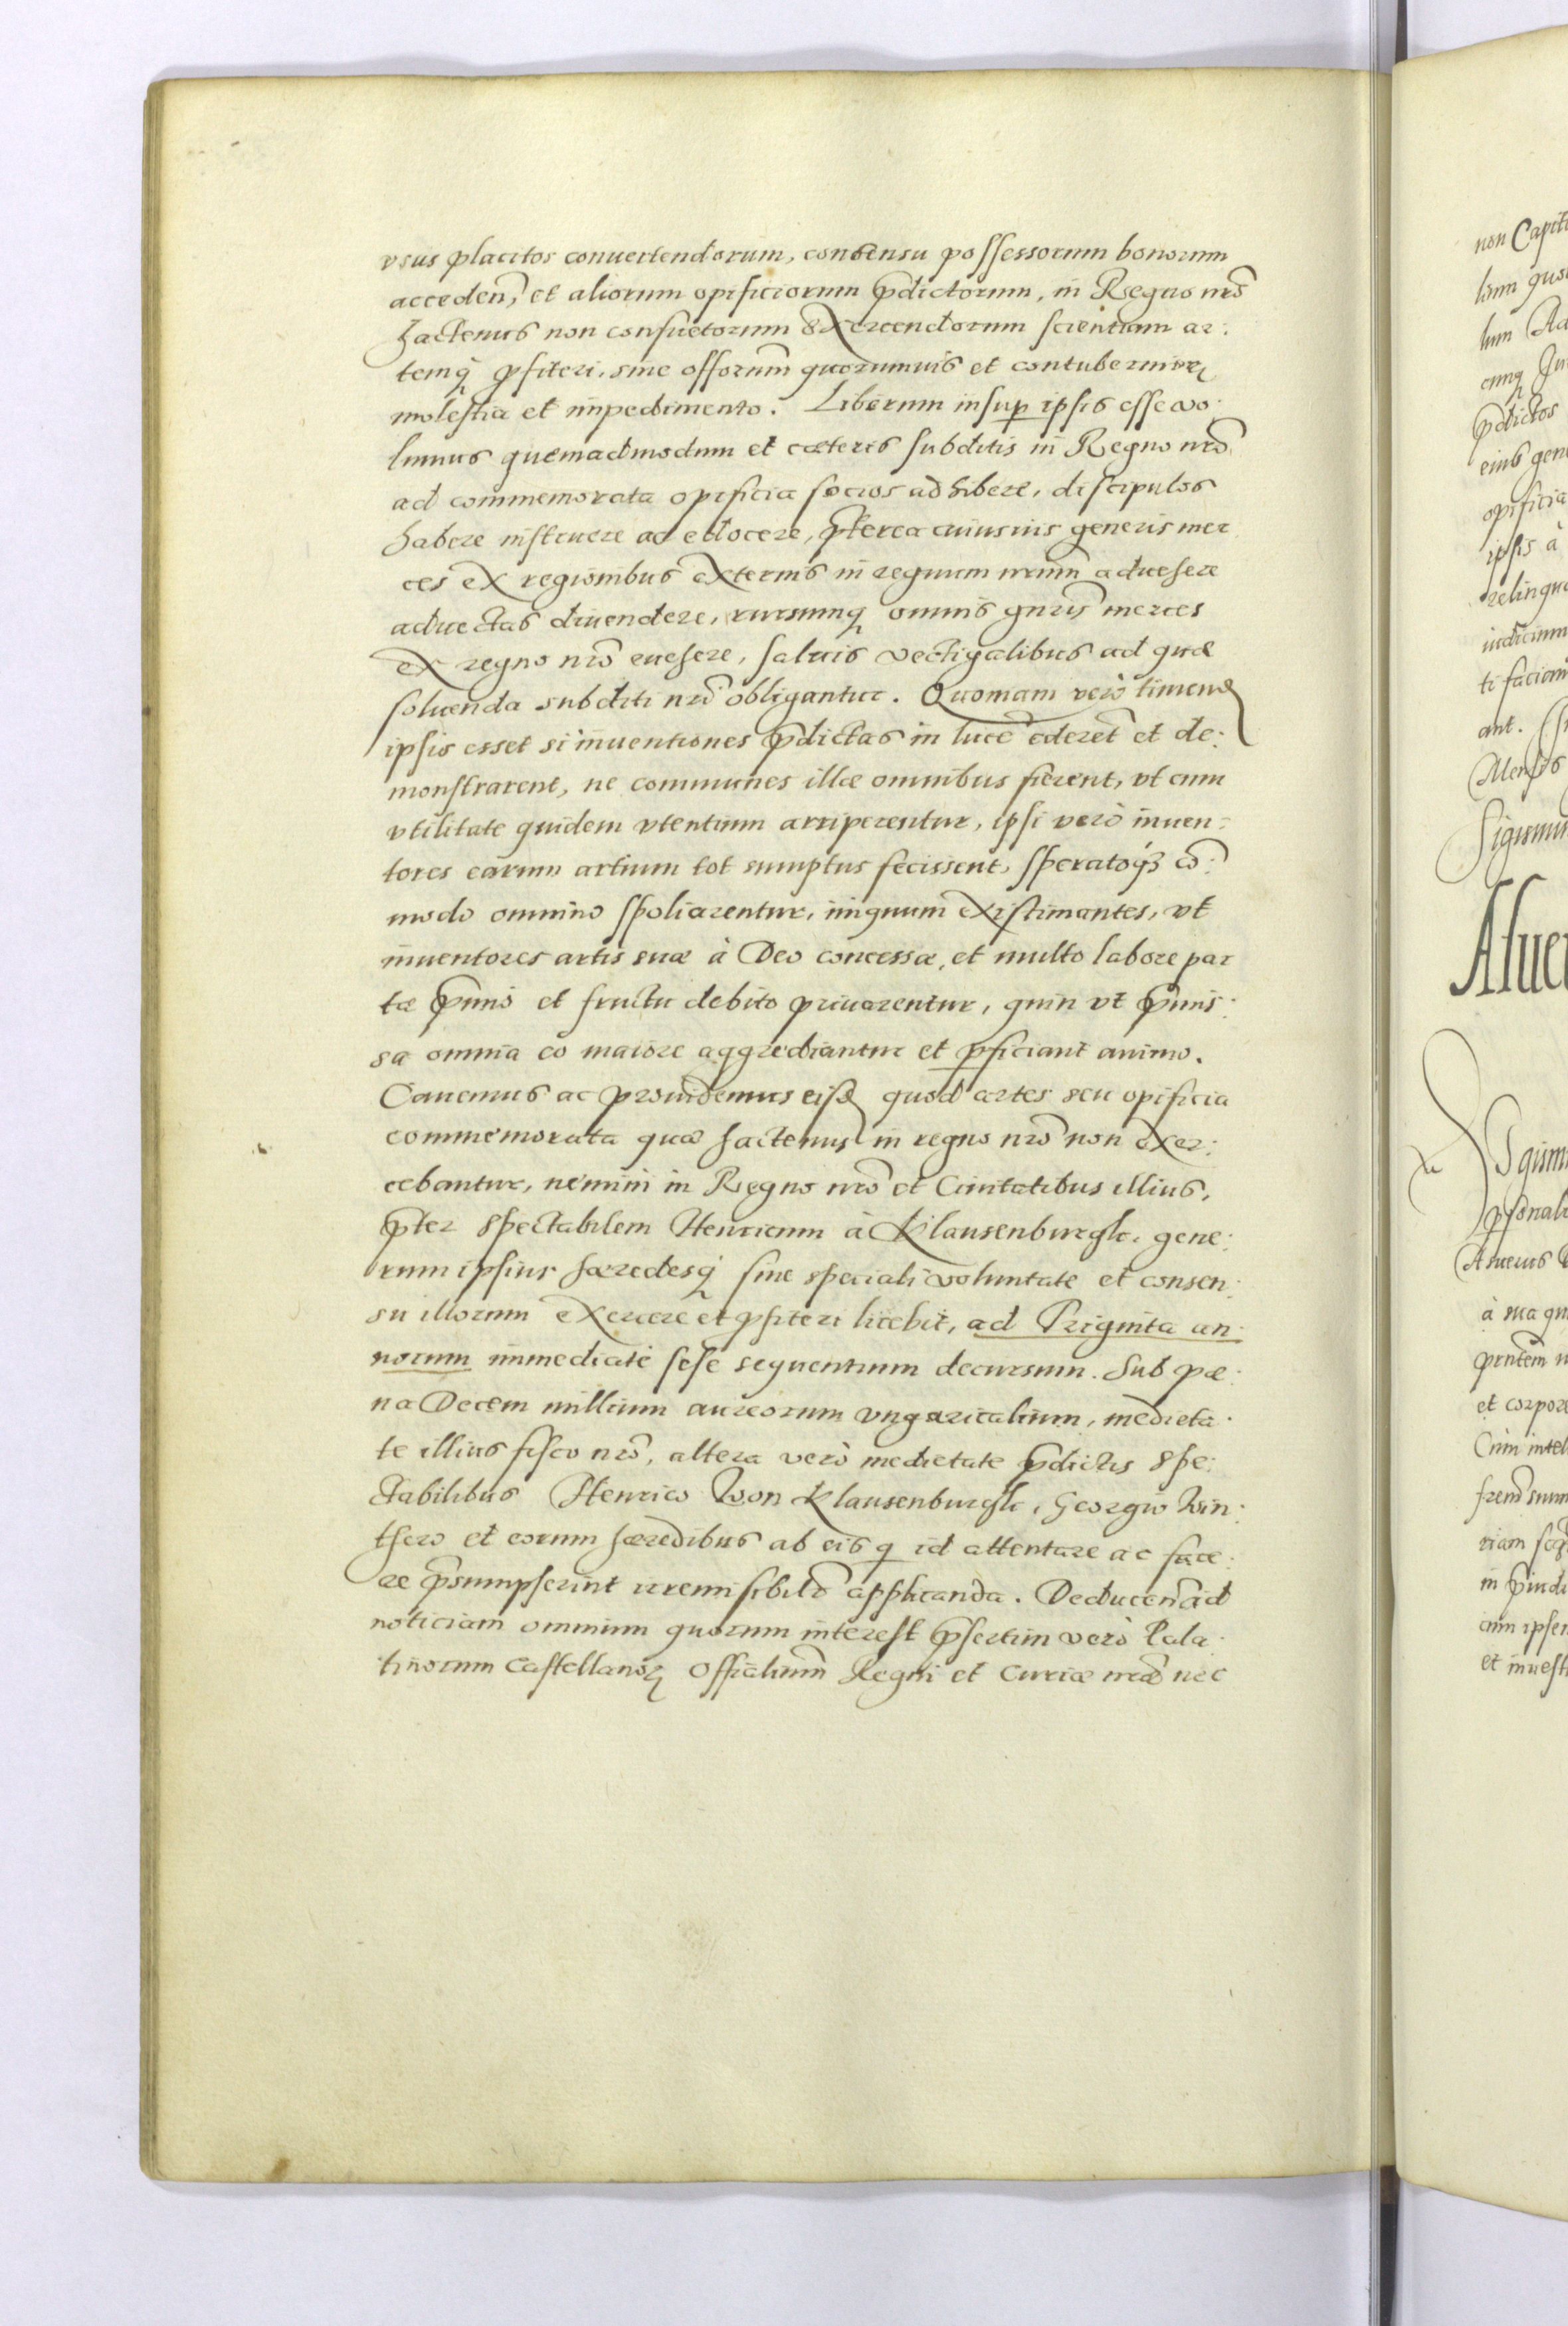 vsus placitos conuertendorum, consensu possessorum bonorum
acceden̄, et aliorum opificiorum p̄dictorum, in Regno nr̄o
hactenus non consuetorum exercendorum scientiam ar:
temq́ ꝓfiteri, sine offorum̄ quorumuis et contuberniorꝝ
molestia et impedimento. Liberum insuꝑ ipsis esse vo:
lumus quemadmodum et cæteris subditis in Regno nr̄o
ad commemorata opificia socios adhibere, discipulos
habere instruere ac edocere, p̄terea cuiusuis generis mer
ces ex regionibus externis in regnum nrum̄ aduehere
aduectas diuendere, rursumq omnis gnris̄ merces
ex regno nr̄o euehere, saluis vectigalibus ad quæ
soluenda subditi nr̄i obligantur. Quoniam verò timenđ
ipsis esset si inuentiones p̄dictas in lucē ederet̄ et de:
monstrarent, ne communes illæ omnibus fierent, vt cum
vtilitate quidem vtentium arriperentur, ipsi verò inuen:
tores earum artium tot sumptus fecissent, speratoqꝫ cō:
modo omnino spoliarentur, iniquum existimantes, vt
inuentores artis suæ à Deo concessæ, et multo labore par
tæ p̄mio et fructu debito priuarentur, quin vt p̄mis:
sa omnia eo maiore aggrediantur et ꝑficiant animo.
Cauemus ac prouidemus eisđ quod artes seu opificia
commemorata quæ hactenus in regno nr̄o non exer:
cebantur, nemini in Regno nr̄o et Ciuitatibus illius,
p̄ter spectabilem Henricum à Klausenburgk, gene:
rum ipsius hæredesq́ sine speciali voluntate et consen:
su illorum exercere et ꝓfiteri licebit, ad Triginta an:
norum immediatè sese sequentium decursum. Sub pæ:
na Decem millium aureorum vngaricalium, medieta:
te illius fisco nr̄o, altera verò medietate p̄dictis spe:
ctabilibus Henrico Von Klausenburgk, Georgio Win:
thero et eorum hæredibus ab eis q id attentare ac face:
re p̄sumpserint irremisibilr̄ applicanda. Deducen̄ ad
noticiam omnium quorum interest p̄sertim verò Pala:
tinorum Castellanorꝝ Officialium̄ Regni et Curiæ nrǣ nec
non Capit
ant.
ipsis à
à sua
et corpore